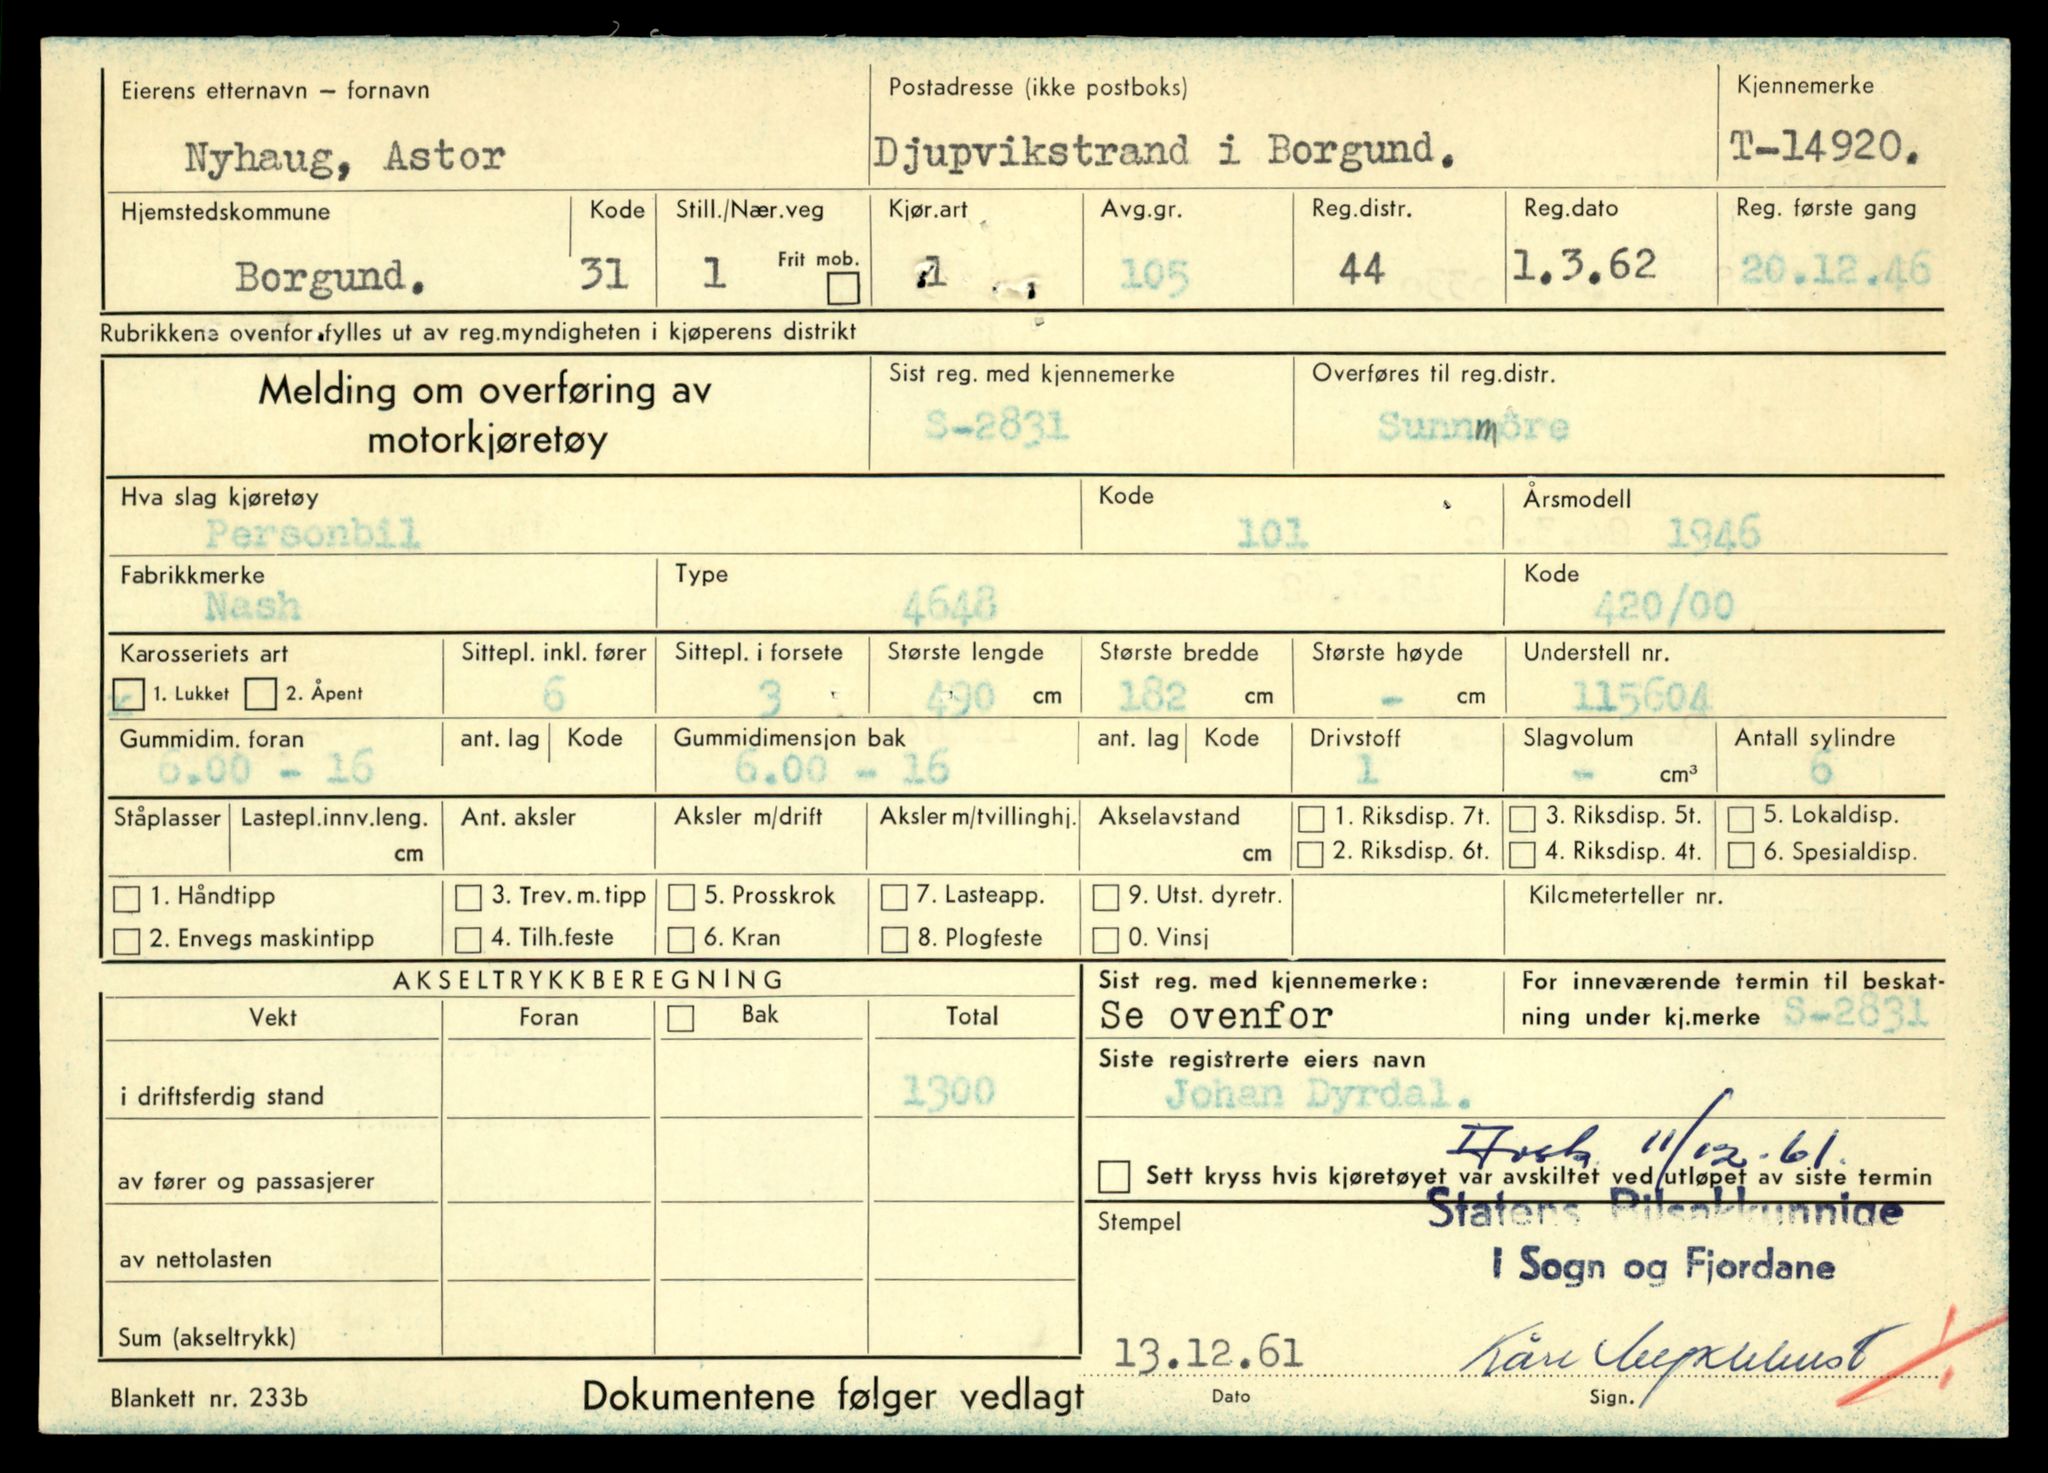 Eierens etternavn – fornavn
Postadresse (ikke postboks)
Kjennemerke
Nyhaug, Astor
Djupvikstrand i Borgund.
T-14920.
Hjemstedskommune
Kode
Still./Nær.veg
Kjør.art
Avg.gr.
Reg.distr.
Reg.dato
Reg. første gang
Borgund.
31
1
Frit mob.
1
105
44
1.3.62
20.12.46
Rubrikkene ovenfor fylles ut av reg.myndigheten i kjøperens distrikt
Melding om overføring av
motorkjøretøy
Sist reg. med kjennemerke
Overføres til reg.distr.
S-2831
Sunnmöre
Hva slag kjøretøy
Kode
Årsmodell
Personbil
101
1946
Fabrikkmerke
Type
Kode
Nash
4648
420/00
Karosseriets art
Sittepl. inkl. fører
Sittepl. i forsete
Største lengde
Største bredde
Største høyde
Understell nr.
x 1. Lukket 2. Åpent
6
3
490 cm
182 cm
- cm
115604
Gummidim. foran
ant. lag
Kode
Gummidimensjon bak
ant. lag
Kode
Drivstoff
Slagvolum
Antall sylindre
6.00 - 16
6.00 - 16
1
- cm³
6
Ståplasser
Lastepl.innv.leng.
Ant. aksler
Aksler m/drift
Aksler m/tvillinghj.
Akselavstand
1. Riksdisp. 7t.
3. Riksdisp. 5t.
5. Lokaldisp.
cm
cm
2. Riksdisp. 6t.
4. Riksdisp. 4t.
6. Spesialdisp.
1. Håndtipp
3. Trev. m. tipp
5. Prosskrok
7. Lasteapp.
9. Utst. dyretr.
Kilcmeterteller nr.
2. Envegs maskintipp
4. Tilh.feste
6. Kran
8. Plogfeste
0. Vinsj
AKSELTRYKKBEREGNING
Sist reg. med kjennemerke:
For inneværende termin til beskat-
Vekt
Foran
Bak
Total
Se ovenfor
ning under kj.merke S-2831
Siste registrerte eiers navn
i driftsferdig stand
1300
Johan Dyrdal.
11/12-61.
av fører og passasjerer
Sett kryss hvis kjøretøyet var avskiltet ved utløpet av siste termin
Stempel
Statens Bilsakkunnige
av nettolasten
i Sogn og Fjordane
Sum (akseltrykk)
13.12.61
Kåre
Blankett nr. 233b
Dokumentene følger vedlagt
Dato
Sign.